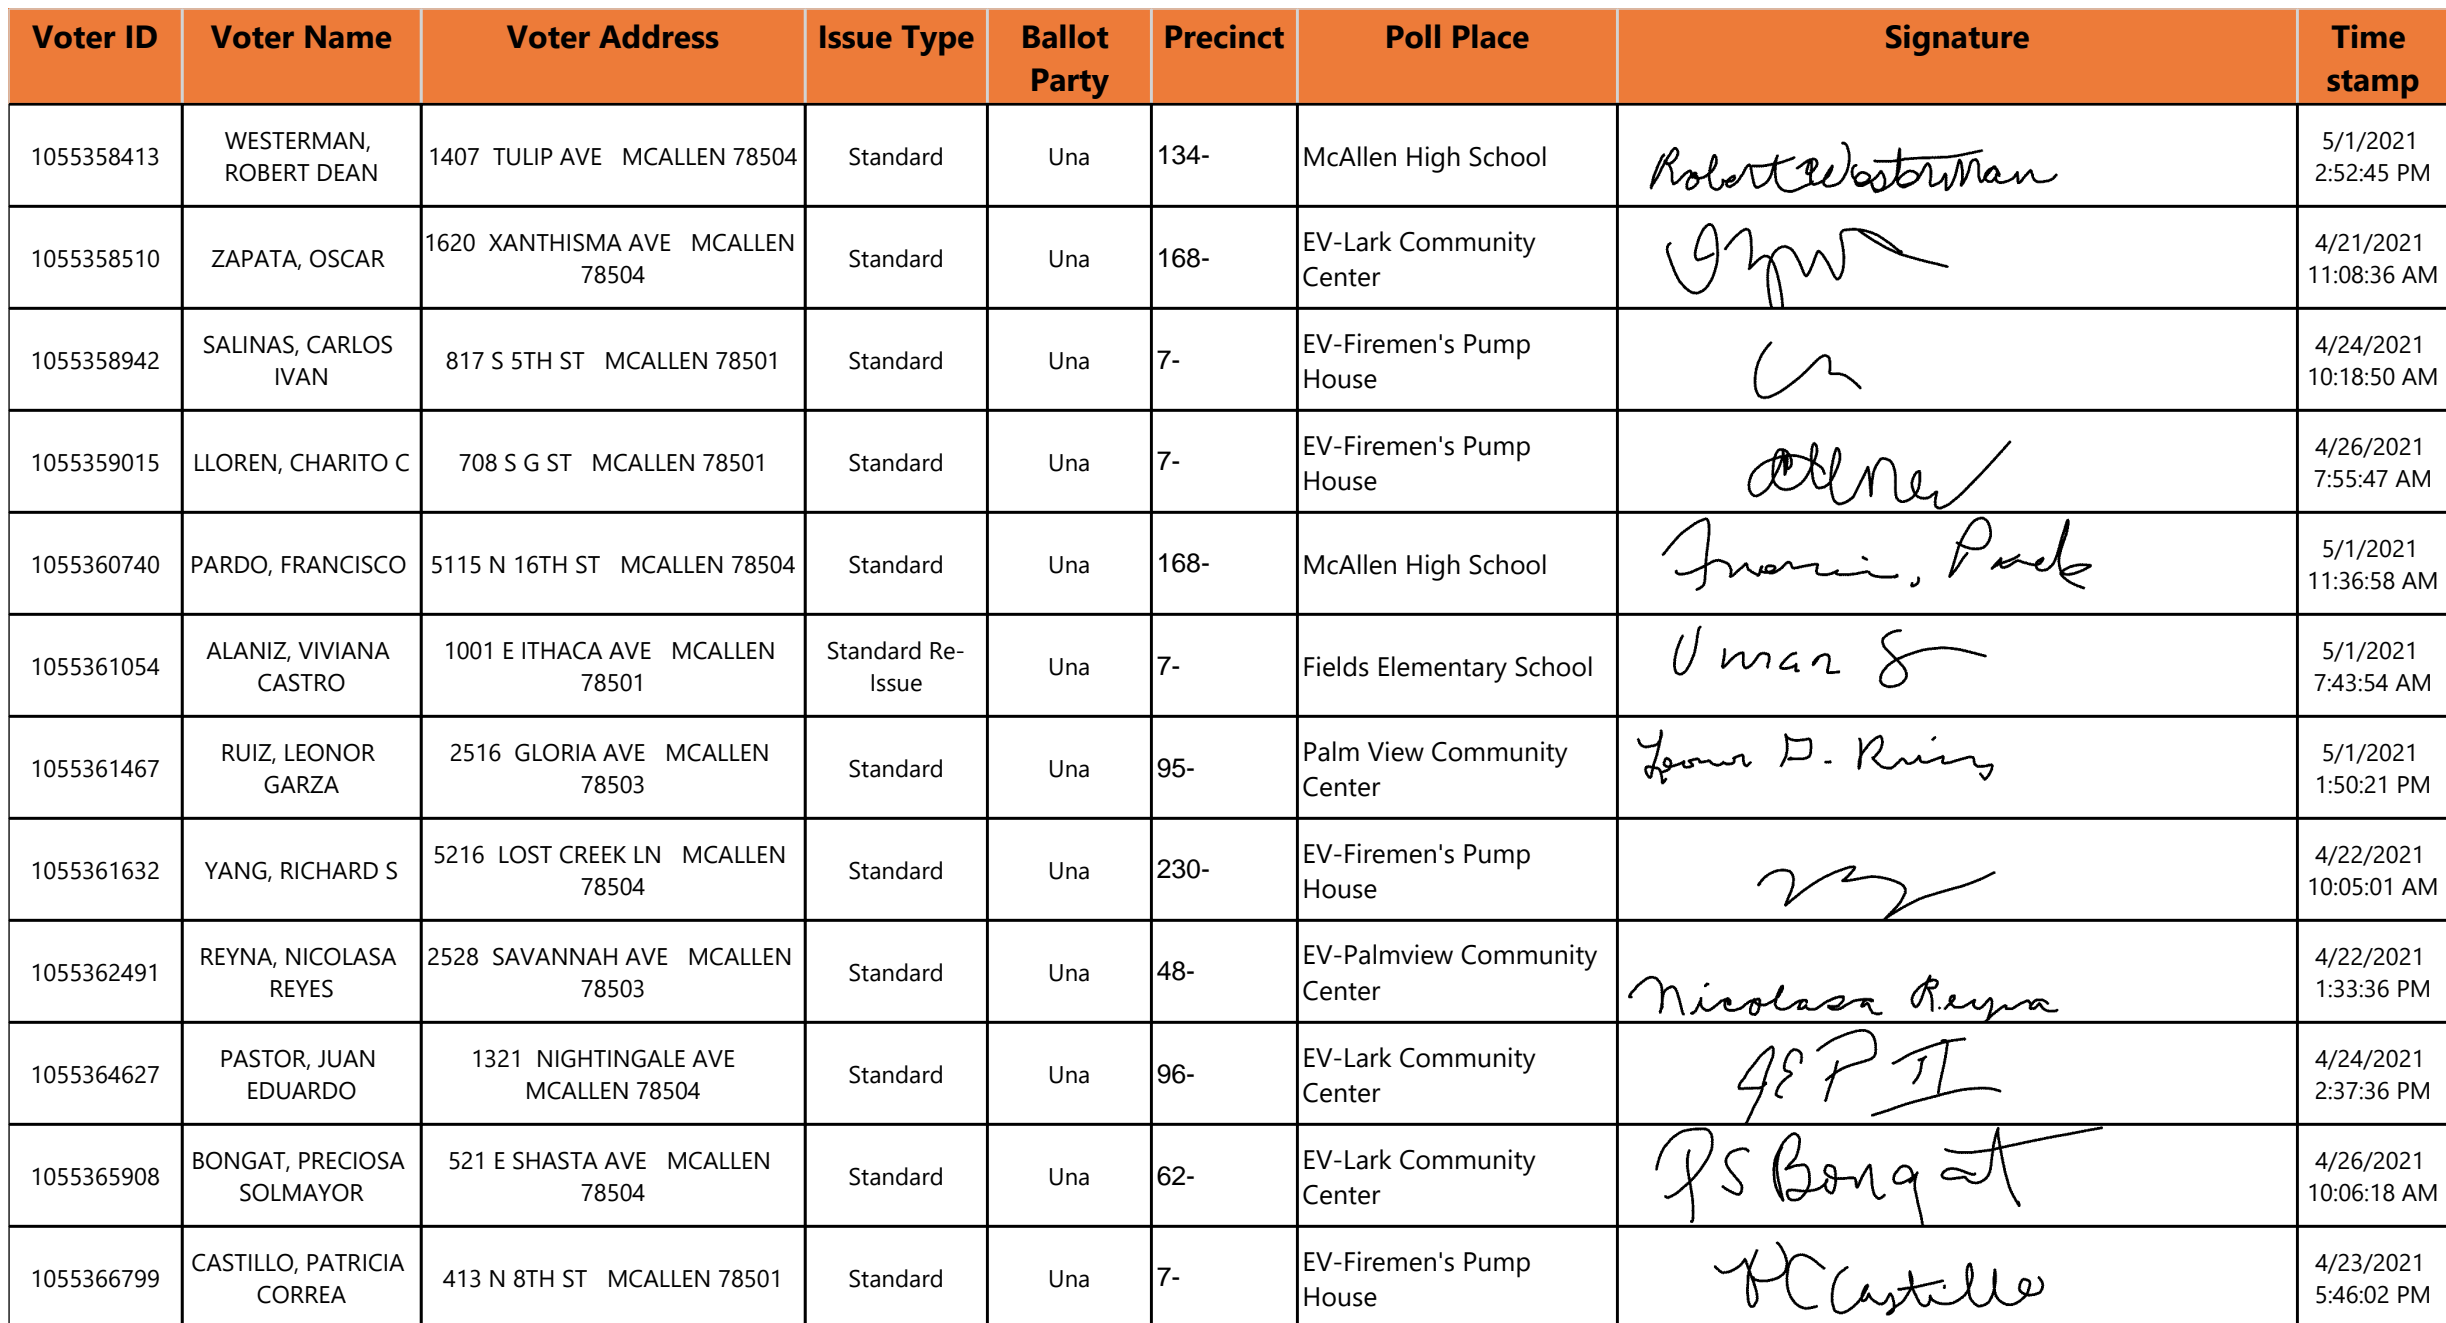 Voter ID Voter Name Voter Address Issue Type Ballot Party Precinct Poll Place Signature Time stamp
1055358413 WESTERMAN, ROBERT DEAN 1407 TULIP AVE MCALLEN 78504 Standard Una 134- McAllen High School Robert Westerman 5/1/2021 2:52:45 PM
1055358510 ZAPATA, OSCAR 1620 XANTHISMA AVE MCALLEN 78504 Standard Una 168- EV-Lark Community Center 4/21/2021 11:08:36 AM
1055358942 SALINAS, CARLOS IVAN 817 S 5TH ST MCALLEN 78501 Standard Una 7- EV-Firemen's Pump House 4/24/2021 10:18:50 AM
1055359015 LLOREN, CHARITO C 708 S G ST MCALLEN 78501 Standard Una 7- EV-Firemen's Pump House 4/26/2021 7:55:47 AM
1055360740 PARDO, FRANCISCO 5115 N 16TH ST MCALLEN 78504 Standard Una 168- McAllen High School 5/1/2021 11:36:58 AM
1055361054 ALANIZ, VIVIANA CASTRO 1001 E ITHACA AVE MCALLEN 78501 Standard Re-Issue Una 7- Fields Elementary School 5/1/2021 7:43:54 AM
1055361467 RUIZ, LEONOR GARZA 2516 GLORIA AVE MCALLEN 78503 Standard Una 95- Palm View Community Center Leonor G. Ruiz 5/1/2021 1:50:21 PM
1055361632 YANG, RICHARD S 5216 LOST CREEK LN MCALLEN 78504 Standard Una 230- EV-Firemen's Pump House 4/22/2021 10:05:01 AM
1055362491 REYNA, NICOLASA REYES 2528 SAVANNAH AVE MCALLEN 78503 Standard Una 48- EV-Palmview Community Center Nicolasa Reyna 4/22/2021 1:33:36 PM
1055364627 PASTOR, JUAN EDUARDO 1321 NIGHTINGALE AVE MCALLEN 78504 Standard Una 96- EV-Lark Community Center JEP II 4/24/2021 2:37:36 PM
1055365908 BONGAT, PRECIOSA SOLMAYOR 521 E SHASTA AVE MCALLEN 78504 Standard Una 62- EV-Lark Community Center PS Bongat 4/26/2021 10:06:18 AM
1055366799 CASTILLO, PATRICIA CORREA 413 N 8TH ST MCALLEN 78501 Standard Una 7- EV-Firemen's Pump House PC Castillo 4/23/2021 5:46:02 PM